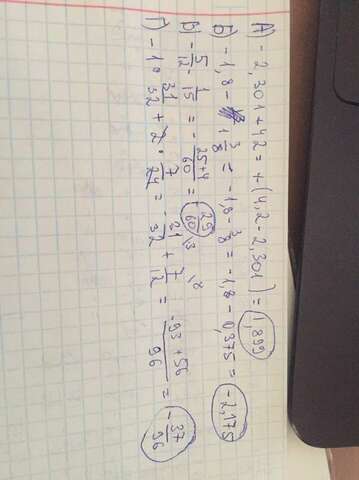 А) -2,301+42=+(4,2-2,301)=1,899
Б) -1,8- 1 3/8 = -1,8- 3/8 = -1,8-0,375 = -2,175
В) - 5/12 - 1/15 = - 25+4/60 = - 29/60
Г) -1 · 31/32 + 2 · 7/24 = - 31/32 + 7/12 = -93+56/96 = - 37/36